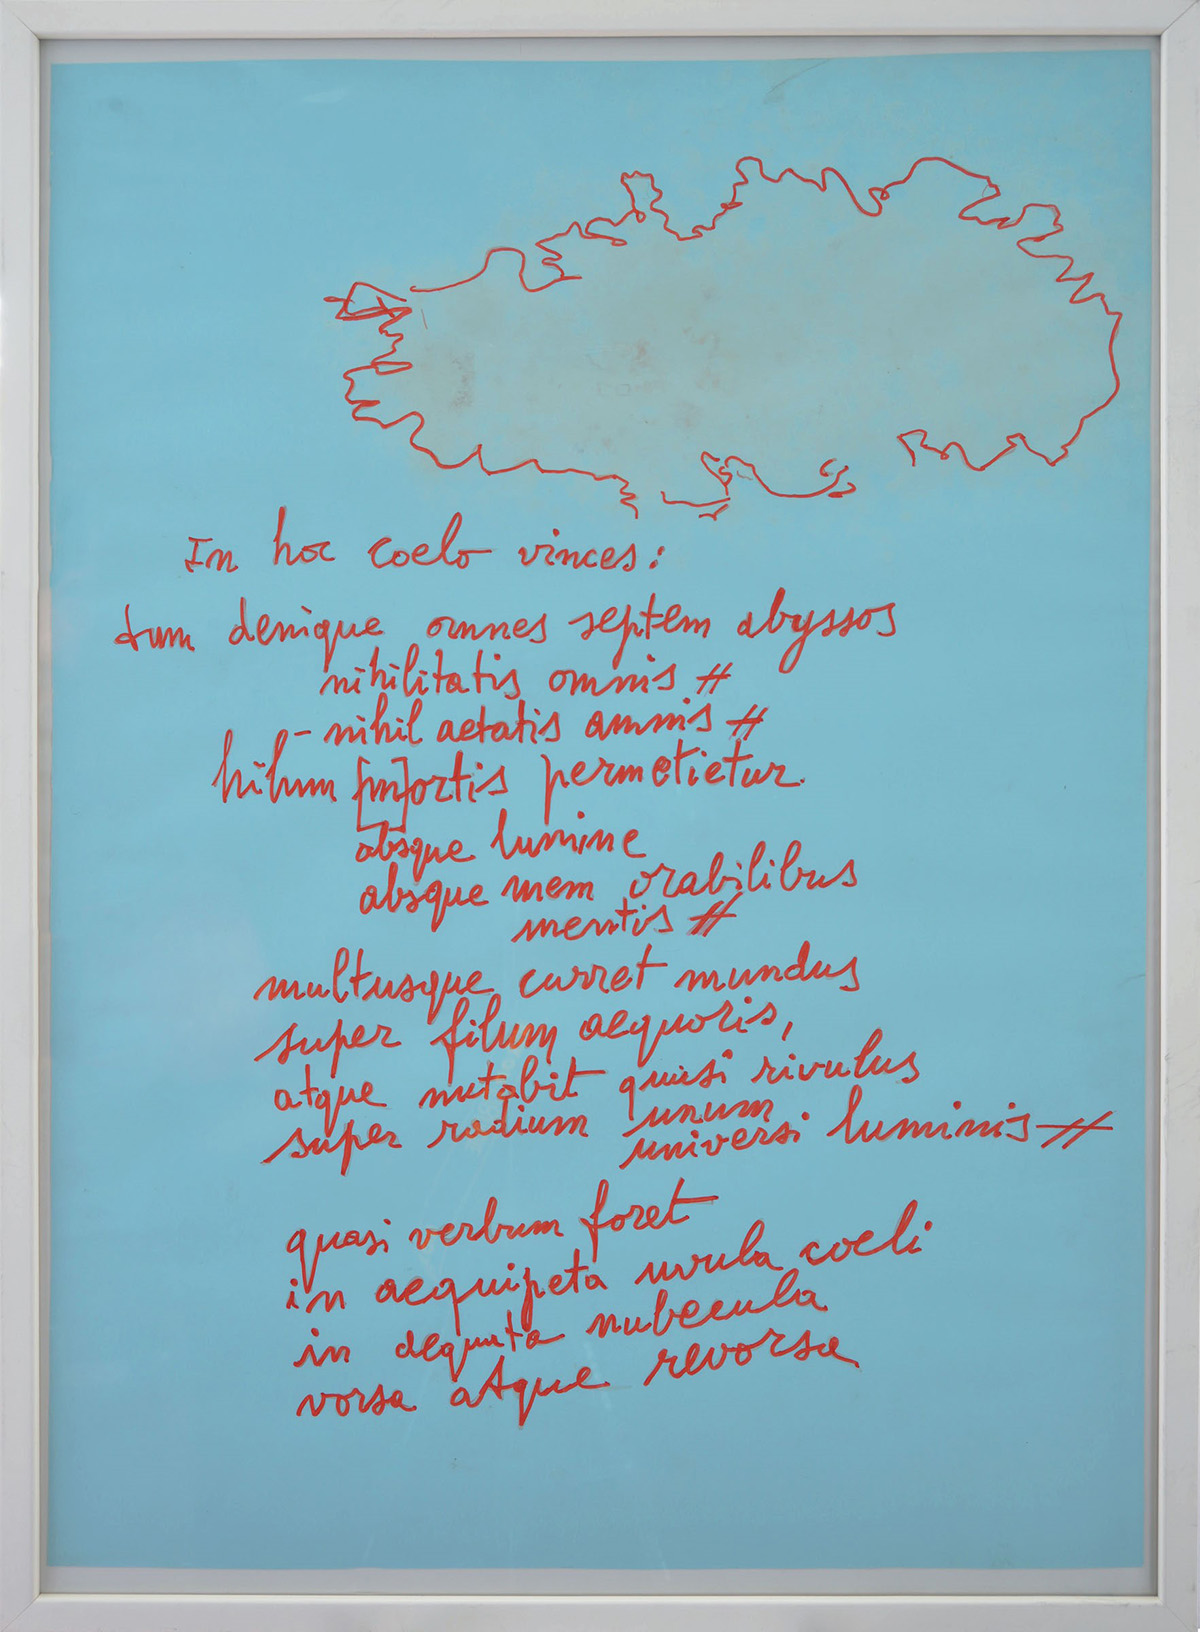 In hoc coelo vinces:
tum denique omnes septem abyssos
nihilitatis omnis #
- nihil aetatis amnis #
hilum [m]ortis permetietur
absque lumine
absque mem orabilibus
mentis #
multusque curret mundus
super filum aequoris,
atque nutabit quasi rivulus
super radium unum
universi luminis #
quasi verbum foret
in aequipeta uvula coeli
in aequata nubecula
vorsa atque revorsa